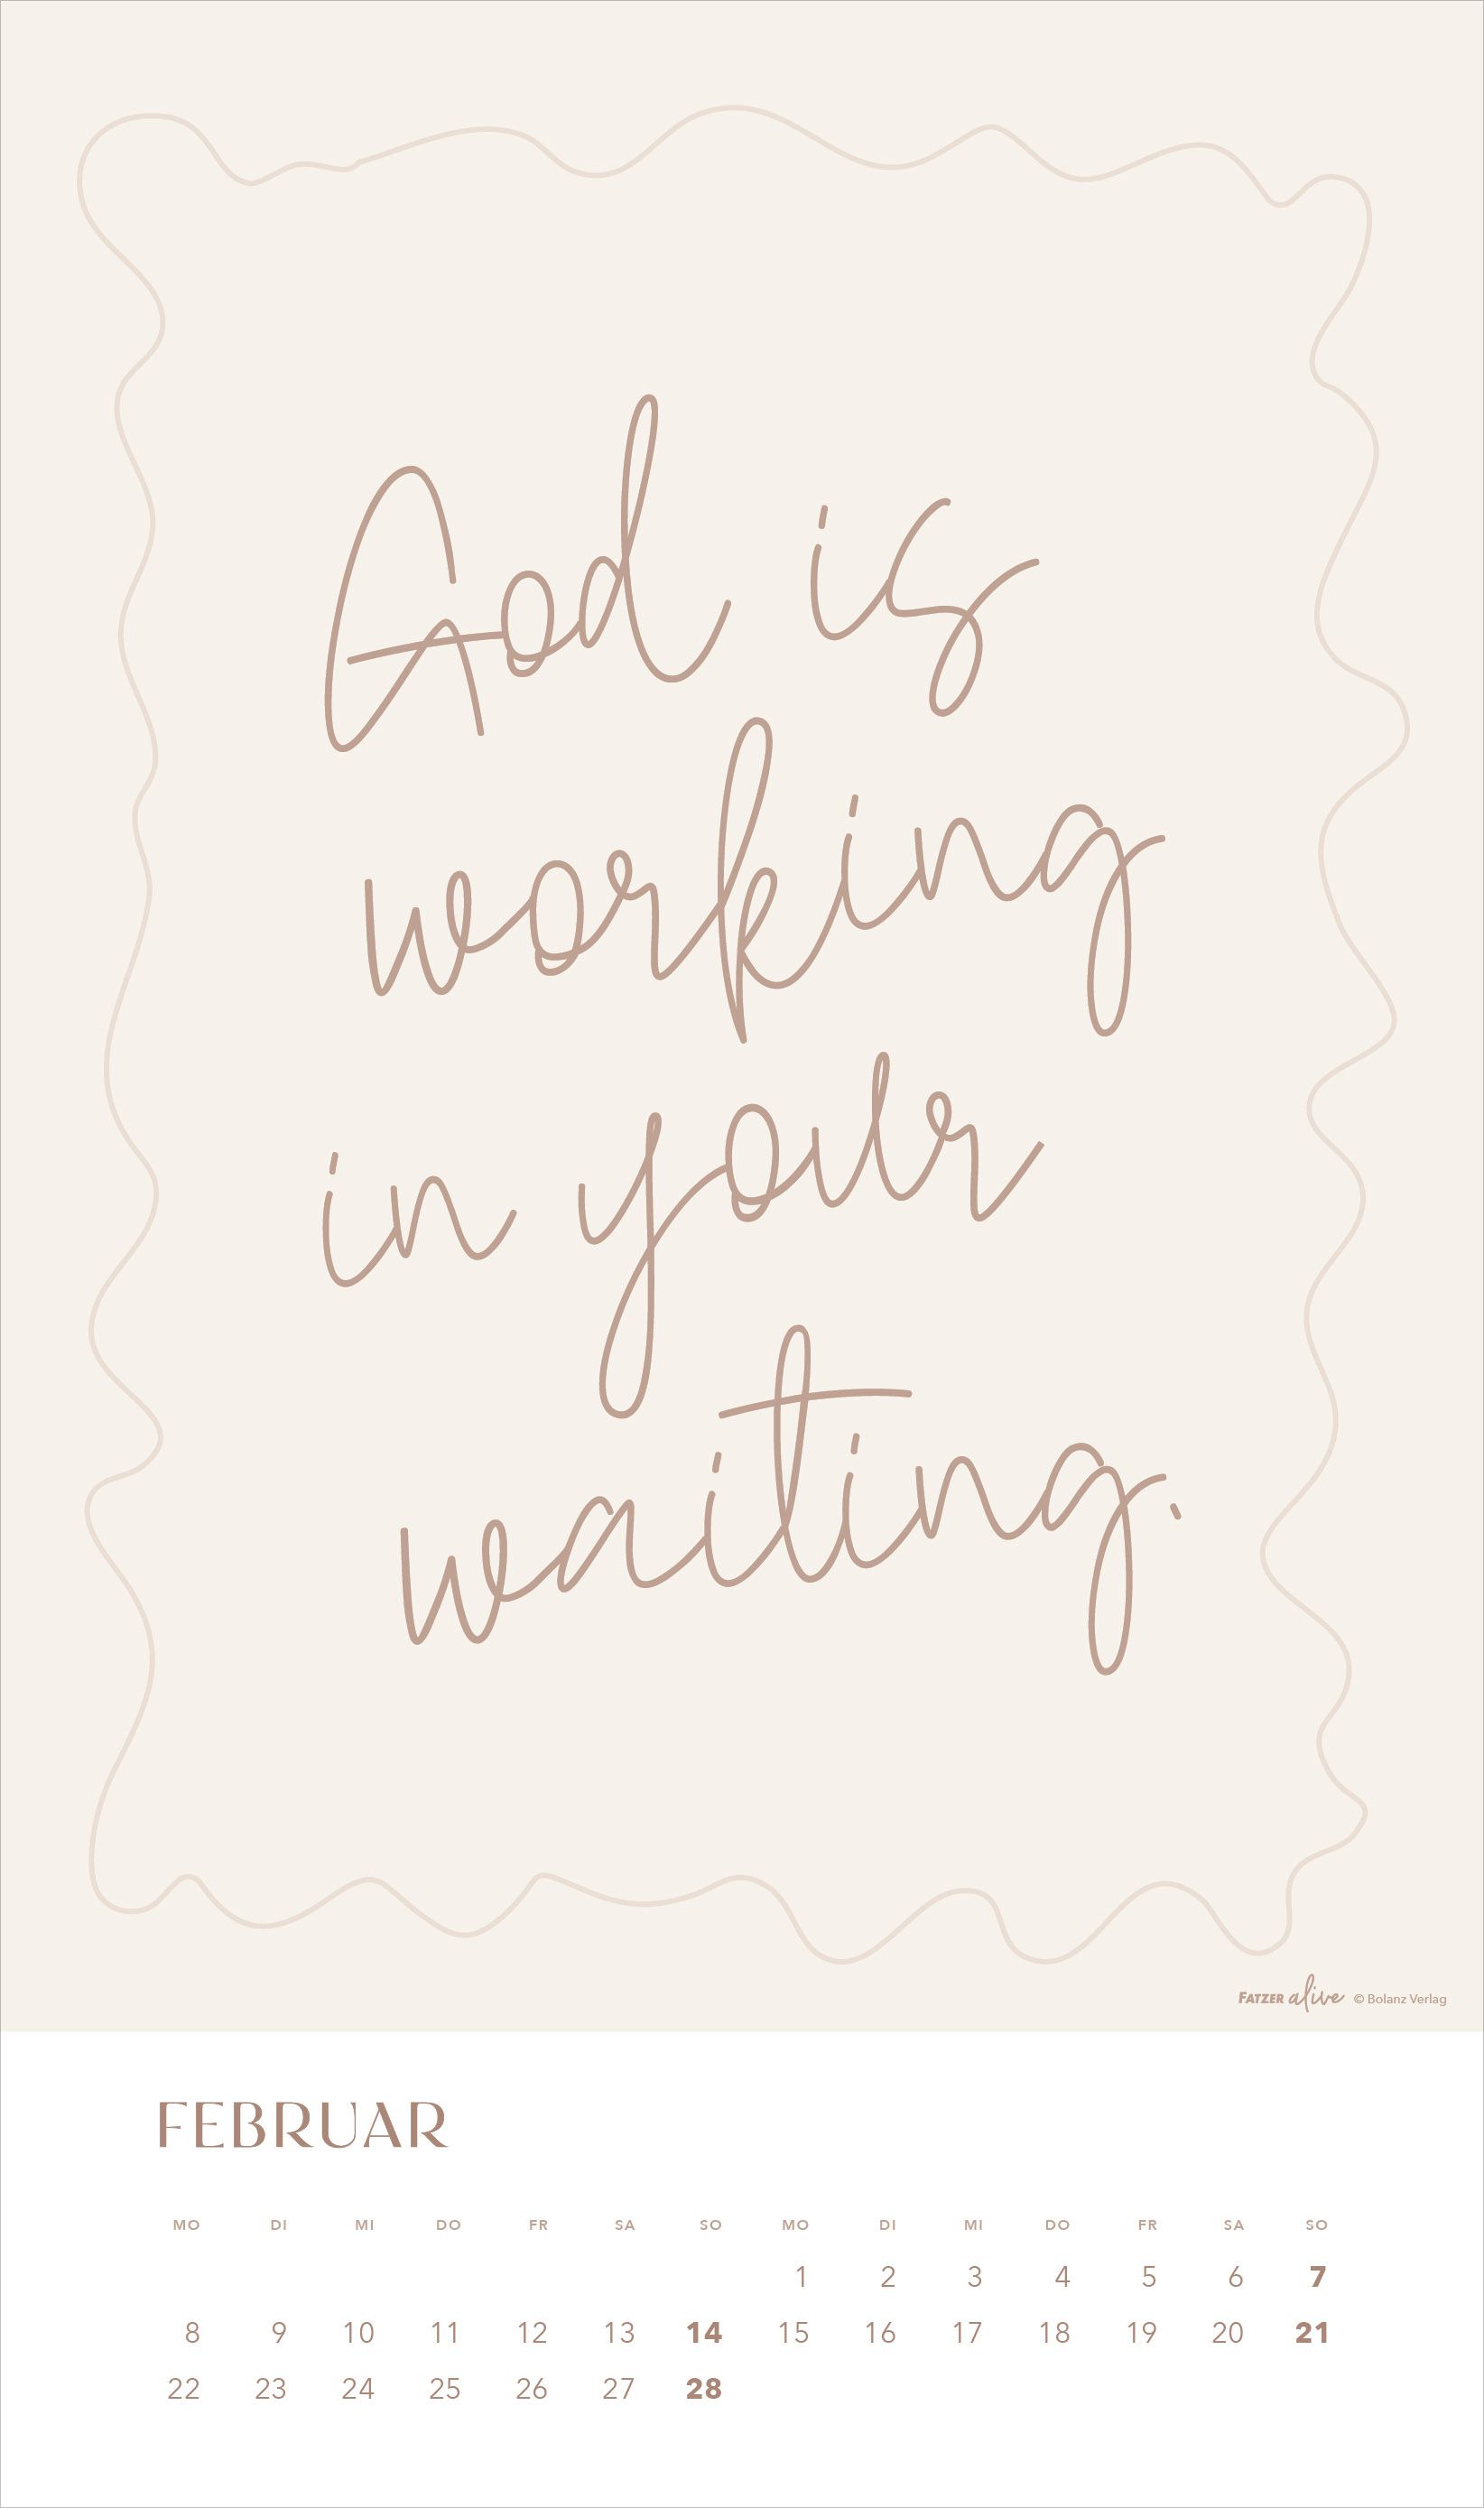 God is
working
in your
waiting.
FATZER alive © Bolanz Verlag
FEBRUAR
MO DI MI DO FR SA SO MO DI MI DO FR SA SO
1 2 3 4 5 6 7
8 9 10 11 12 13 14 15 16 17 18 19 20 21
22 23 24 25 26 27 28